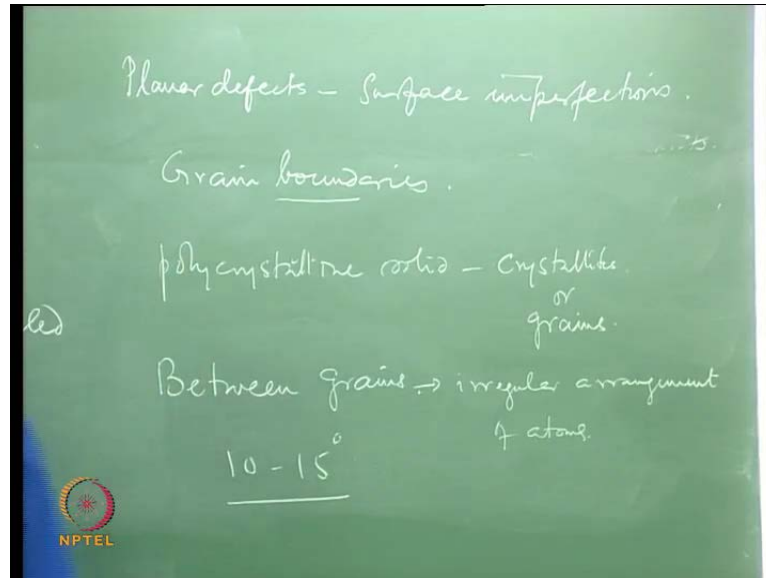 Planar defects - Surface imperfections.
Grain boundaries.
polycrystalline solid - Crystallites
or
grains.
led
Between grains → irregular arrangement
of atoms.
10 - 15°
NPTEL